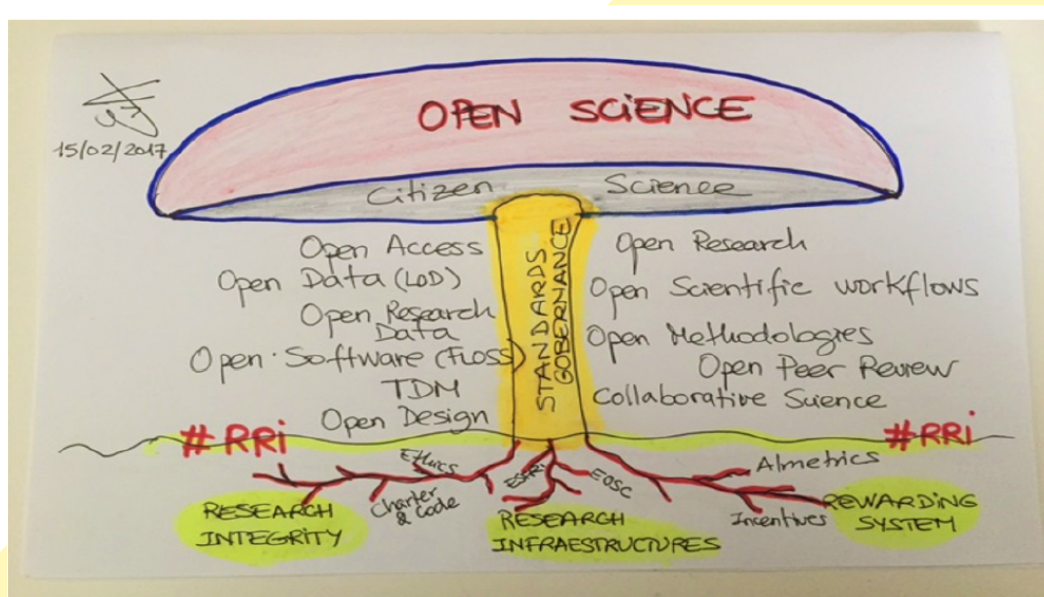 15/02/2017
OPEN SCIENCE
Citizen Science
Open Access
Open Data (LOD)
Open Research
Data
Open Software (FLOSS)
TDM
Open Design
STANDARDS
GOBERNANCE
Open Research
Open Scientific workflows
Open Methodologies
Open Peer Review
Collaborative Science
#RRi
#RRi
Ethics
Charter
& Code
RESEARCH
INTEGRITY
ESFRI
EOSC
RESEARCH
INFRAESTRUCTURES
Almetrics
Incentives
REWARDING
SYSTEM